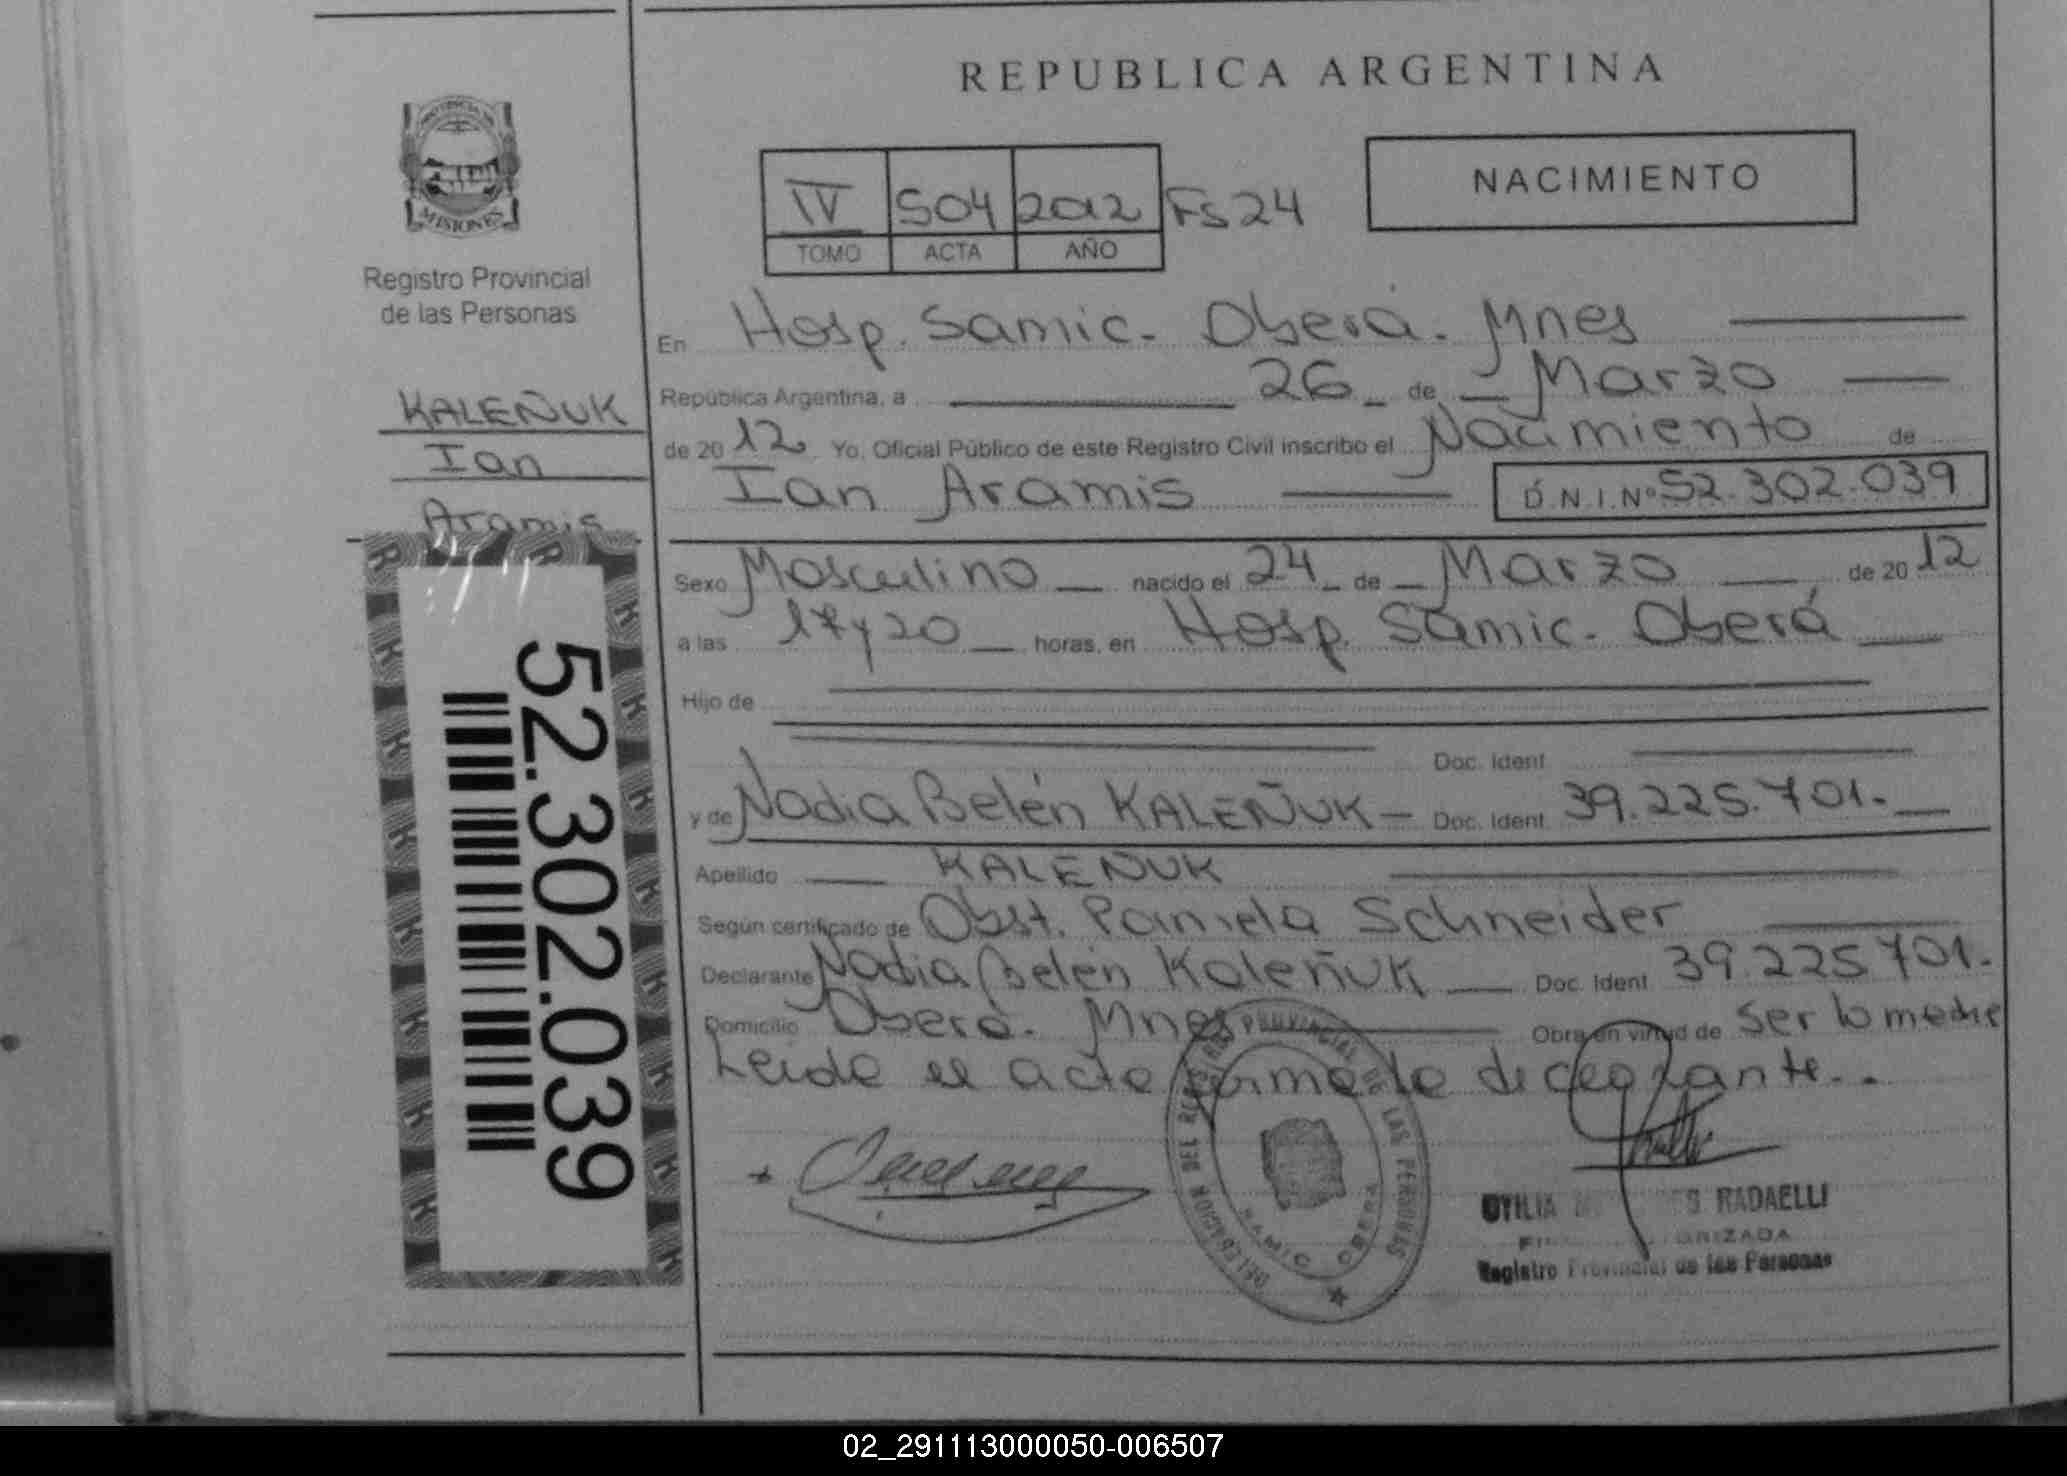 REPUBLICA ARGENTINA
PROVINCIA DE
MISIONES
Registro Provincial
de las Personas
NACIMIENTO
IV 504 2012 Fs 24
TOMO ACTA AÑO
KALEÑUK
Ian
Aramis
52.302.039
En Hosp. Samic. Oberá. Mnes
República Argentina, a 26 de Marzo
de 2012 Yo, Oficial Público de este Registro Civil inscribo el Nacimiento de
Ian Aramis D.N.I.Nº 52.302.039
Sexo Masculino nacido el 24 de Marzo de 2012
a las 17 y 20 horas, en Hosp. Samic. Oberá
Hijo de
Doc. Ident.
y de Nadia Belén KALEÑUK Doc. Ident. 39.225.701.
Apellido KALEÑUK
Según certificado de Obst. Pamela Schneider
Declarante Nadia Belén Kaleñuk Doc. Ident. 39.225.701.
Domicilio Oberá. Mnes Obra en virtud de ser la madre
Leida el acta firma la declarante..
DELEGACION DEL REGISTRO PROVINCIAL DE LAS PERSONAS
SAMIC OBERA
RADAELLI
Registro Provincial de las Personas
02_291113000050-006507